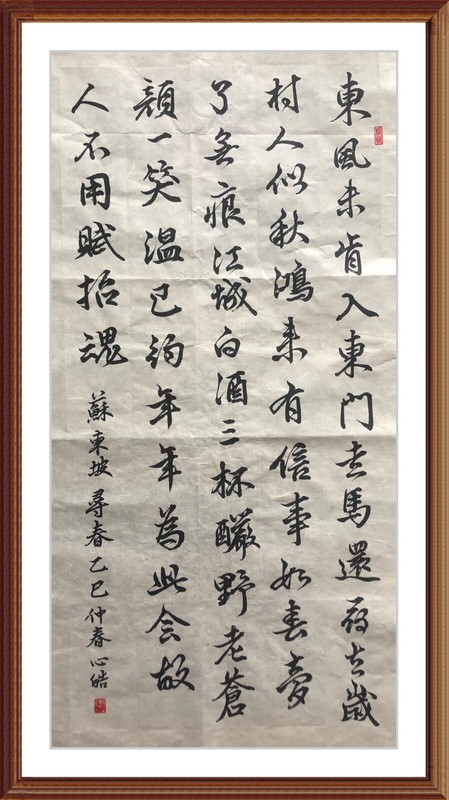 東風未肯入東門走馬還尋去歲
村人似秋鴻来有信事如春夢
了無痕江城白酒三杯釅野老蒼
顏一笑溫已約年年為此会故
人不用賦招魂
蘇東坡尋春乙巳仲春心皓